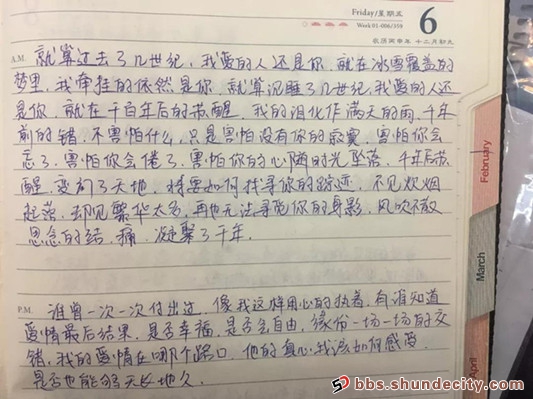 Friday/星期五
Week 01-006/359
6
农历丙申年 十二月初九
A.M. 就算过去了几世纪,我爱的人还是你,就在冰雪覆盖的
梦里,我牵挂的依然是你,就算沉睡了几世纪,我爱的人还
是你,就在千百年后的苏醒,我的泪化作满天的雨,千年
前的错,不害怕什么,只是害怕没有你的寂寞,害怕你会
忘了,害怕你会倦了,害怕你的心随时光坠落,千年后苏
醒,变幻了天地,我要如何找寻你的踪迹,不见炊烟
起落,却见繁华太多,再也无法寻觅你的身影,风吹不散
思念的结,痛,凝聚了千年.
P.M. 谁曾一次一次付出过,像我这样用心的执着,有谁知道
爱情最后结果,是否幸福,是否多自由,缘份一场一场的交
错,我的爱情在哪个路口,他的真心,我该如何感受,
是否也能够天长地久.
February
March
April
bbs.shundecity.com